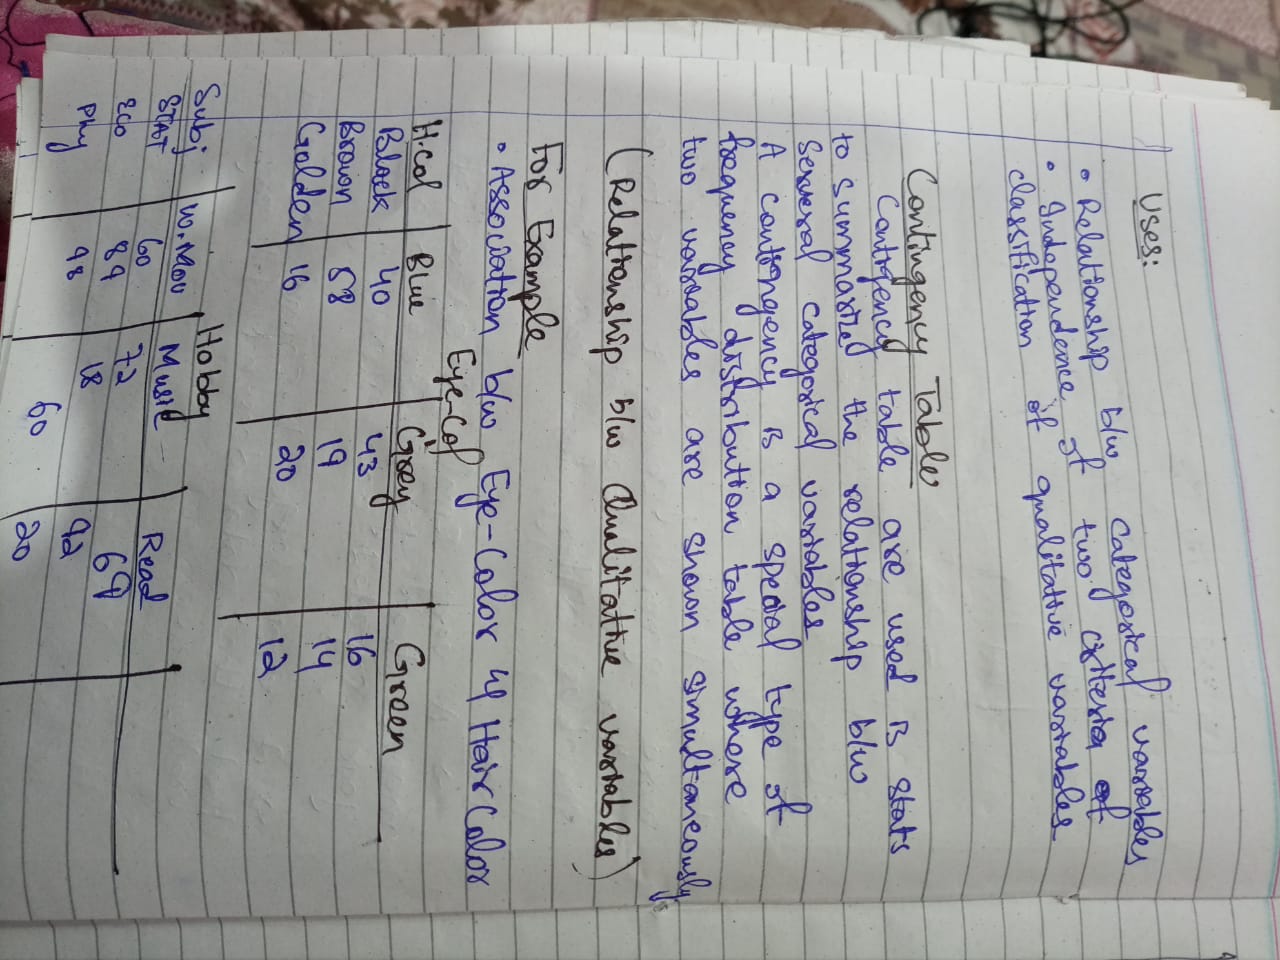 Uses:
• Relationship b/w categorical variables
• Independence of two criteria of
classification of qualitative variables
Contingency Table
Contigency table are used is stats
to summarized the relationship b/w
serveral categorical variables
A contingency is a special type of
frequency distribution table where
two variables are shown simultaneously.
(Relationship b/w Qualitative variables)
For Example
• Association b/w Eye-Color & Hair Color
Eye-Col
H.Col Blue Grey Green
Black 40 43 16
Brown 58 19 14
Golden 16 20 12
Hobby
Subj W.Mov Music Read
STAT 60 72 69
Eco 89 18 92
Phy 98 60 20